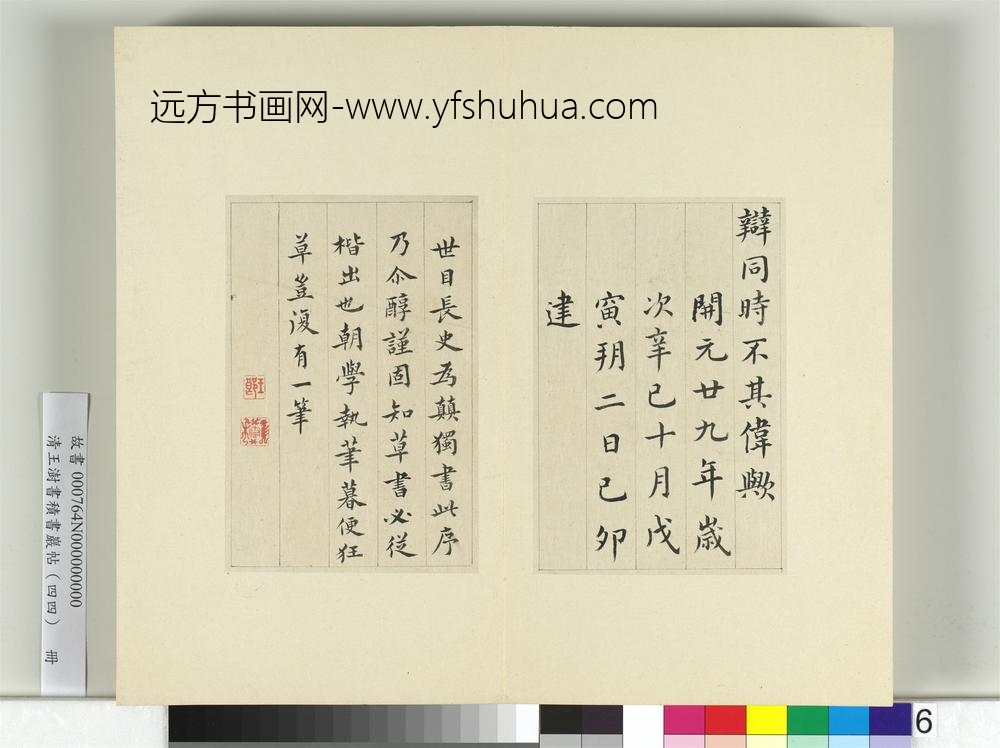 远方书画网-www.yfshuhua.com
辯同時不其偉歟
開元廿九年歲
次辛已十月戊
寅玥二日已卯
建
世目長史為顛獨書此序
乃尒醇謹固知草書必從
楷出也朝學執筆暮便狂
草豈復有一筆
故書 000764N000000000
清王澍書積書巖帖(四四) 冊
6